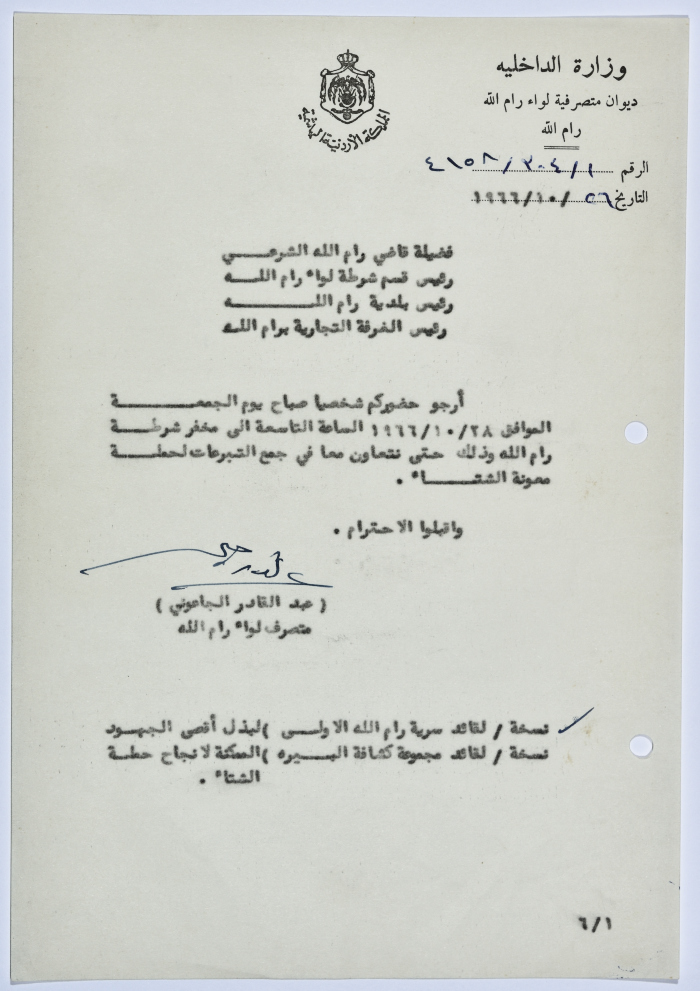 وزارة الداخليه
ديوان متصرفية لواء رام الله
رام الله
المملكة الأردنية الهاشمية
الرقم ٤١٥٨/٣٠٤/١
التاريخ ١٩٦٦/١٠/٢٦
فضيلة قاضي رام الله الشرعـــي
رئيس قسم شرطة لواء رام اللــه
رئيس بلدية رام اللـــــــه
رئيس الغرفة التجارية برام اللـه
أرجو حضوركم شخصيا صباح يوم الجمعـــــة
الموافق ١٩٦٦/١٠/٢٨ الساعة التاسعة الى مخفر شرطـة
رام الله وذلك حتى نتعاون معا في جمع التبرعات لحملـــة
معونة الشتـــاء .
واقبلوا الاحترام .
( عبد القادر الجاعوني )
متصرف لواء رام الله
نسخة / لقائد سرية رام الله الاولــى ) لبذل أقصى الجهـود
نسخة / لقائد مجموعة كشافة البــيره ) الممكنة لانجاح حملـة
الشتاء .
٦/١